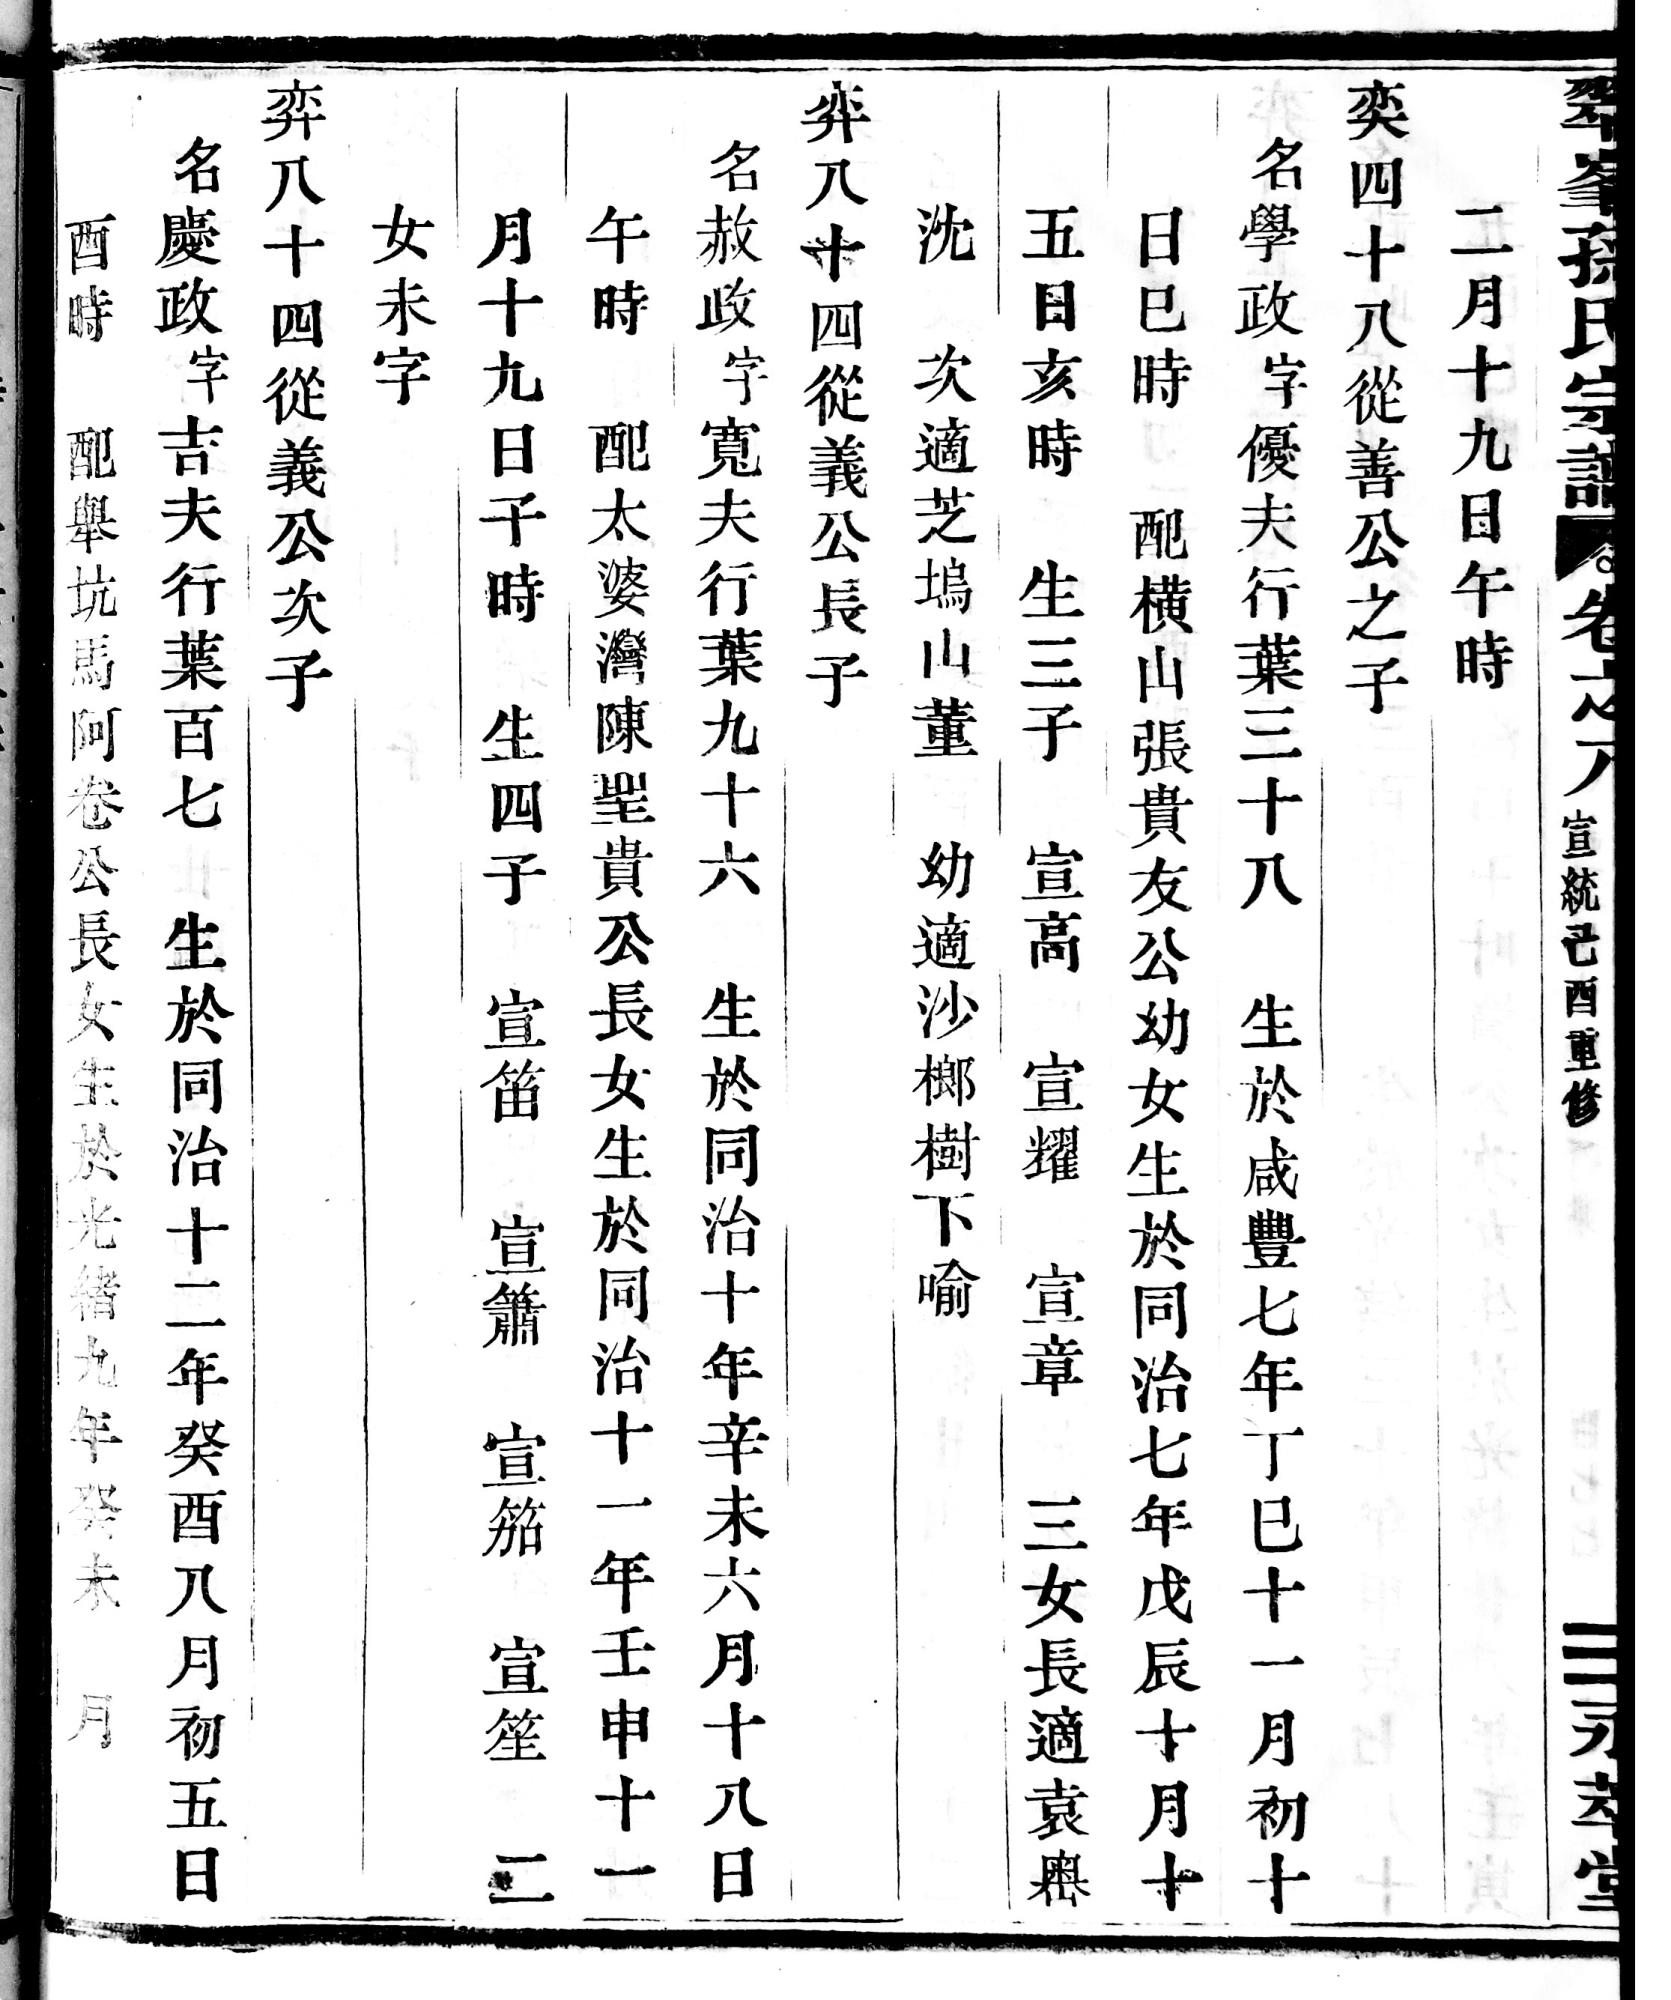 翠峯孫氏宗譜 卷之八 宣統己酉重修 二 永萃堂
二月十九日午時
奕四十八從善公之子
名學政字優夫行葉三十八 生於咸豐七年丁巳十一月初十
日巳時 配橫山張貴友公幼女生於同治七年戊辰十月十
五日亥時 生三子 宣高 宣耀 宣章 三女長適袁嶴
沈 次適芝塢山董 幼適沙榔樹下喻
弈八十四從義公長子
名赦政字寬夫行葉九十六 生於同治十年辛未六月十八日
午時 配太婆灣陳聖貴公長女生於同治十一年壬申十一
月十九日子時 生四子 宣笛 宣簫 宣笳 宣笙 二
女未字
弈八十四從義公次子
名慶政字吉夫行葉百七 生於同治十二年癸酉八月初五日
酉時 配舉坑馬阿卷公長女生於光緒九年癸未 月